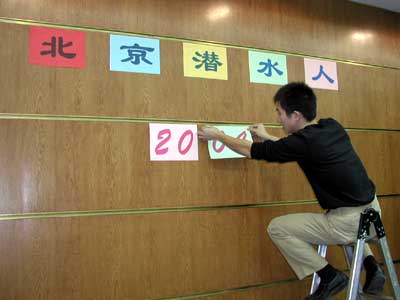 北京潜水人
20